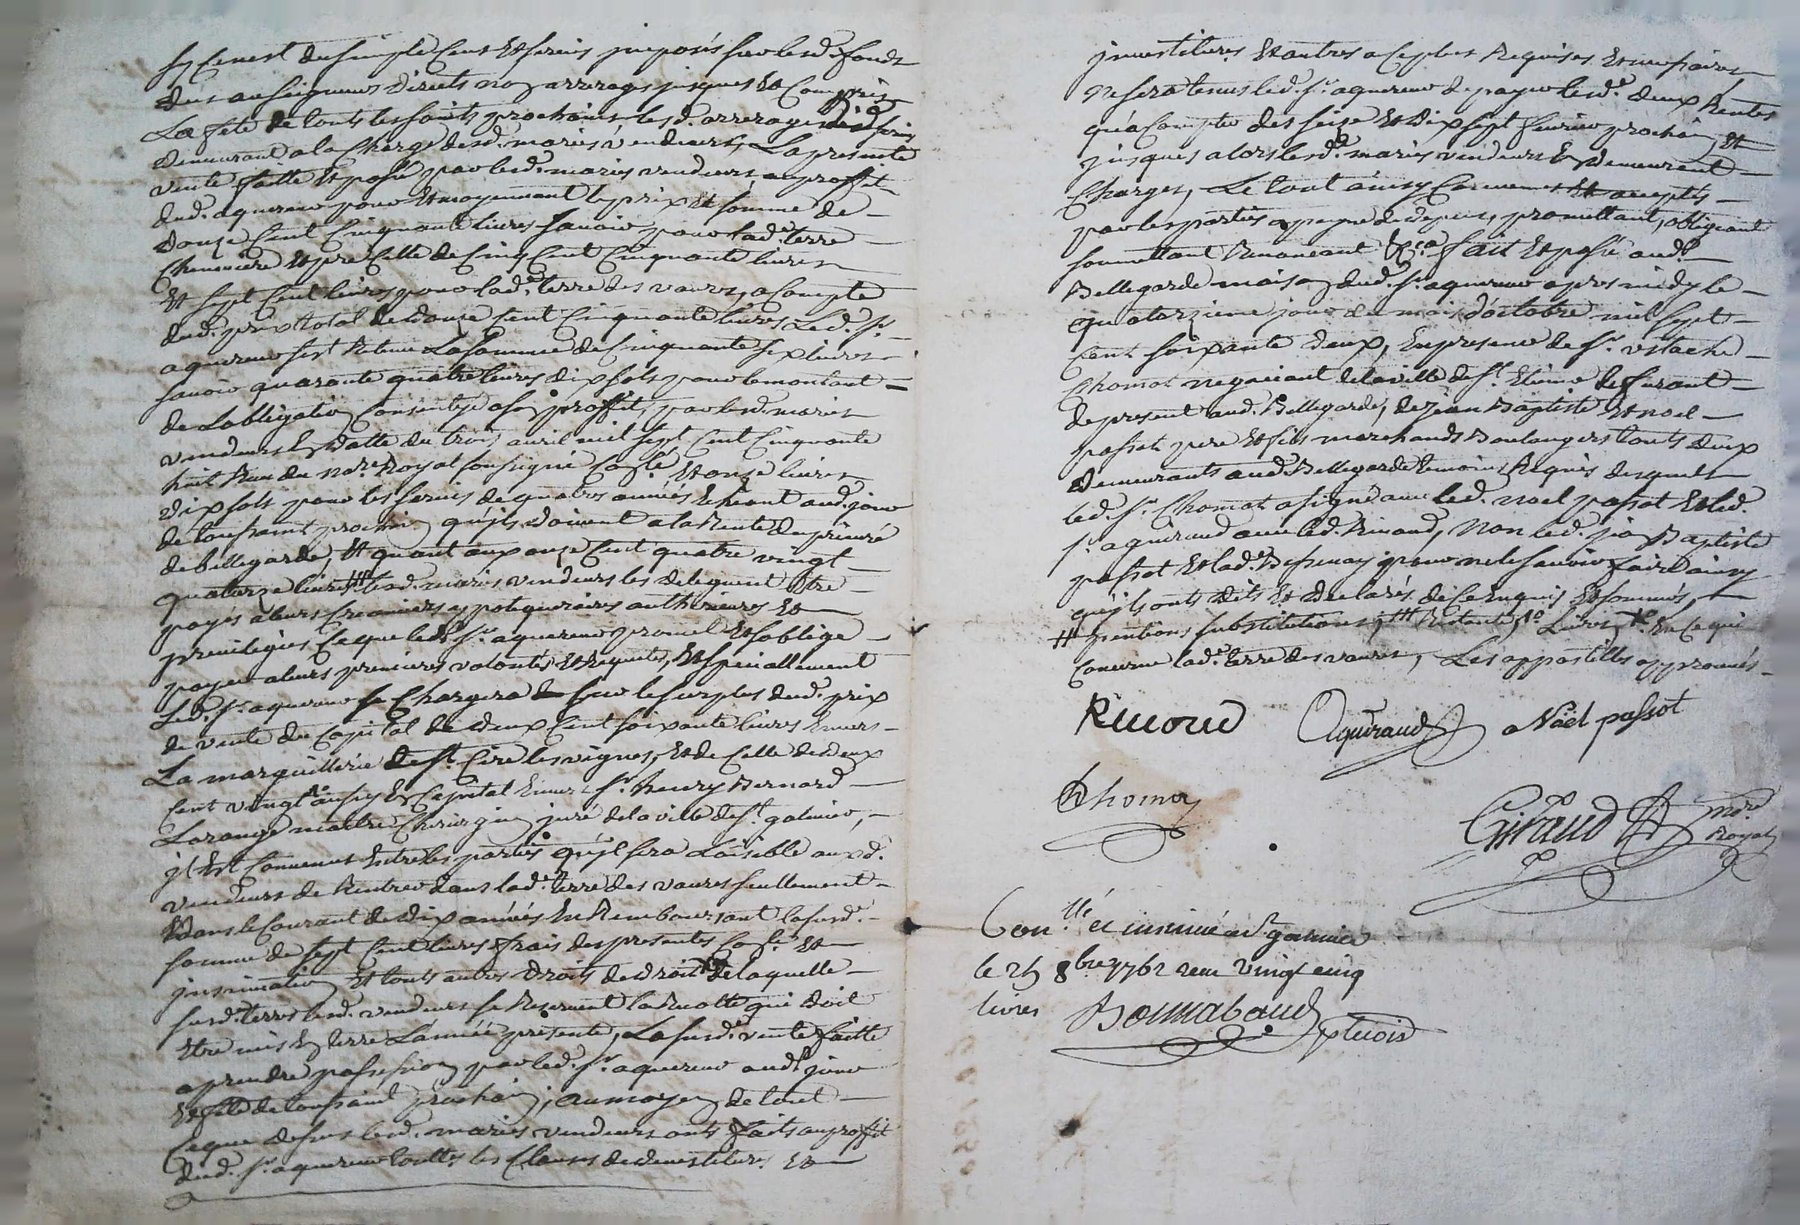 sy Ce nest du simple Cens et servis imposés sur lesd. fonds
dus au seigneurs directs non arrerages jusques et Compris
La fete de touts les saints prochains lesd. arrerages
demeurant a la Charge desd. mariés vendeurs, La presente
vente faitte et passé par lesd. mariés vendeurs au proffit
dud. aquereur pour et moyennant le prix et somme de
douze Cent Cinquante livres savoir pour lad.e terre
Cheneviere et pré Celle de Cinq Cent Cinquante livres
et sept Cent livres pour lad.e terre des vaures, a Compte
dud. prix total de douze Cent Cinquante livres Led. sr.
aquereur sest Retenu La somme de Cinquante six livres
savoir quarante quatre livres dix sols pour le montant
de Lobligation Consentye a son proffit, par lesd. mariés
vendeurs En datte du trois avril mil sept Cent Cinquante
huit Reçu du no.re Royal soussigné Con.lé et onze livres
dix sols pour les servis de quatre années Echeant aud. jour
de toussaint prochain quils doivent a la Rente du prieuré
de bellegarde, et quant aux onze Cent quatre vingt
quatorze livres lesd. mariés vendeurs les deleguent Etre
payés a leurs Creanciers ypotequaires anthérieurs et
privilegiés Ce que led. sr. aquereur promet et soblige
payer a leurs premieres volontés et Requetes, et speciallement
Led. sr. aquereur se Chargera sur le surplus dud. prix
de vente du Capital de deux Cent soixante livres Envers
La marguillerie de st. Cire les vignes, et de Celle de deux
Cent vingt aussy En Capital Envers sr. henry Bernard
Lorange maitre Chirurgien juré de la ville de st. galmier,
il Est Convenus Entre les parties quil sera Loisible auxd.
vendeurs de Rentrer dans lad.e terre des vaures seullement
Dans le Courant de dix années En Remboursant la susd.
somme de sept Cent livres frais des presentes Con.le et
insinuation et touts autres droits de droit de laquelle
susd. terre lesd. vendeurs se Reservent la Recolte qui doit
Etre mis En terre Lannée presente, La susd.e vente faitte
a prendre possession par led. sr. aquereur aud. jour
et fete de toussaint prochain, au moyen de tout
Ce que dessus lesd. mariés vendeurs onts faits au proffit
dud. sr. aquereur touttes les Clauses de devestitures et
jnvestitures et autres a Ce plus Requises et necessaires
ne sera tenus led. sr. aquereur de payer lesd. deux Rentes
qu'a Compter des seize et dix sept fevrier prochain, et
jusques alors lesd. mariés vendeurs En demeurent
Charges, Le tout ainsy Convenus et acceptés
par les parties a peyne de depens, promettant, obligeant
soumettant Renonceant &.ca fait et passé aud.
Bellegarde maison dud. sr. aquereur apres midy le
quatorzieme jour du mois d'octobre mil sept
Cent soixante deux, En presence de sr. ustache
Chomat negociant de la ville de st. Etienne de furant
de present aud. Bellegarde, de jean Baptiste et noel
passot pere et fils marchands Boulangers touts deux
demeurants aud. Bellegarde temoins Requis desquels
led. sr. Chomat a signé avec led. noel passot et led.
sr. aguiraud avec led. Rivaud, Non led. jean Baptiste
passot et lad. pour ne le savoir faire ainsy
quils onts dits et declarés de Ce Enquis et sommés,
# pentions substitutions, ### Restants Livres, En Ce qui
Concerne lad.e terre des vaures, Les appostilles approuvés
Aguiraud Noël passot
Chomat
Giraud nore. Royal
Con.llé et insinué a st galmier
le 25 8bre 1762 reçu vingt cinq
livres